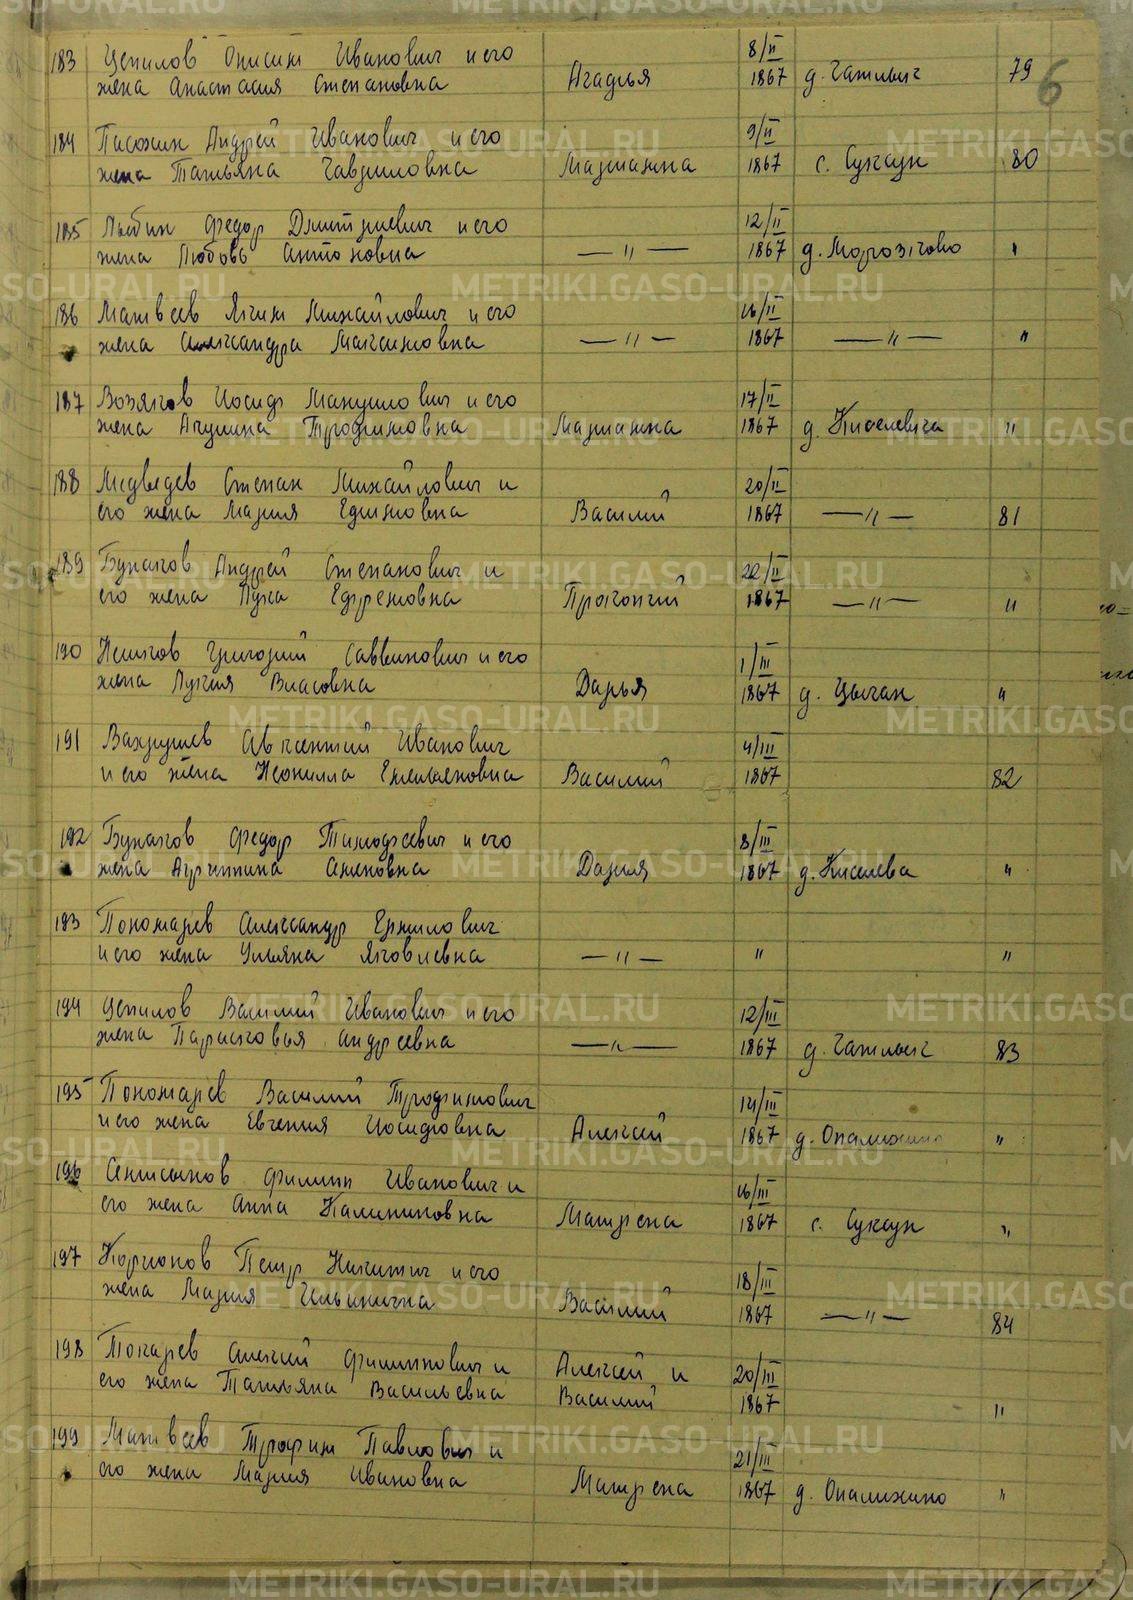 183 Цепилов Онисим Иванович и его 8/II
жена Анастасия Степановна Агафья 1867 д. 79 6
184 Пасохин Андрей Иванович и его 9/II
жена Татьяна Гавриловна Марианна 1867 с. Суксун 80
185 Федор Дмитриевич и его 12/II
жена Любовь Антоновна —"— 1867 д. Морозково "
186 Матвеев Яким Михайлович и его 16/II
жена Александра Максимовна —"— 1867 —"— "
187 Возяков Иосиф Мануилович и его 17/II
жена Акулина Трофимовна Марианна 1867 д. "
188 Медведев Степан Михайлович и 20/II
его жена Мария Ефимовна Василий 1867 —"— 81
189 Бунаков Андрей Степанович и 22/II
его жена Лука Ефремовна Прокопий 1867 —"— "
190 Григорий Саввинович и его 1/III
жена Лукия Власовна Дарья 1867 д. Цыган "
191 Вахрушев Авксентий Иванович 4/III
и его жена Неонилла Емельяновна Василий 1867 82
192 Бунаков Федор Тимофеевич и его 8/III
жена Агриппина Дария 1867 д. Киселева "
193 Пономарев Александр Ермилович
и его жена Ульяна Яковлевна —"— " "
194 Цепилов Василий Иванович и его 12/III
жена Парасковья Андреевна —"— 1867 д. 83
195 Пономарев Василий Трофимович 14/III
и его жена Евгения Иосифовна Алексей 1867 д. Опалихино "
196 Филипп Иванович и 16/III
его жена Анна Калинниковна Матрена 1867 с. Суксун "
197 Корионов Петр Никитич и его 18/III
жена Мария Ильинична Василий 1867 —"— 84
198 Токарев Алексей Филиппович и Алексей и 20/III
его жена Татьяна Васильевна Василий 1867 "
199 Матвеев Трофим Павлович и 21/III
его жена Мария Ивановна Матрена 1867 д. Опалихино "
METRIKI.GASO-URAL.RU